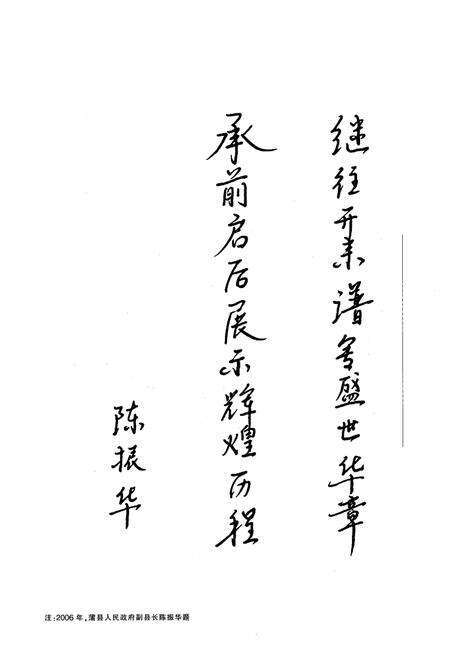 继往开来谱写盛世华章
承前启后展示辉煌历程
陈振华
注:2006年,蒲县人民政府副县长陈振华题